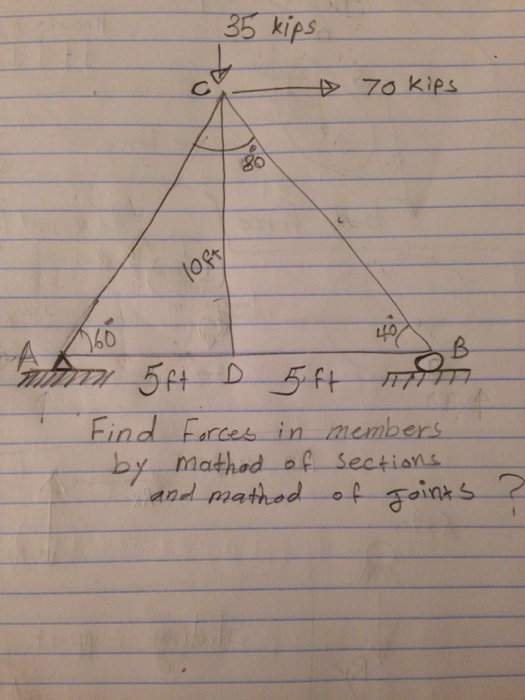 35 kips
C 70 kips
80°
10ft
A 60° 40° B
5ft D 5ft
Find Forces in members
by mathod of sections
and mathod of Joints ?